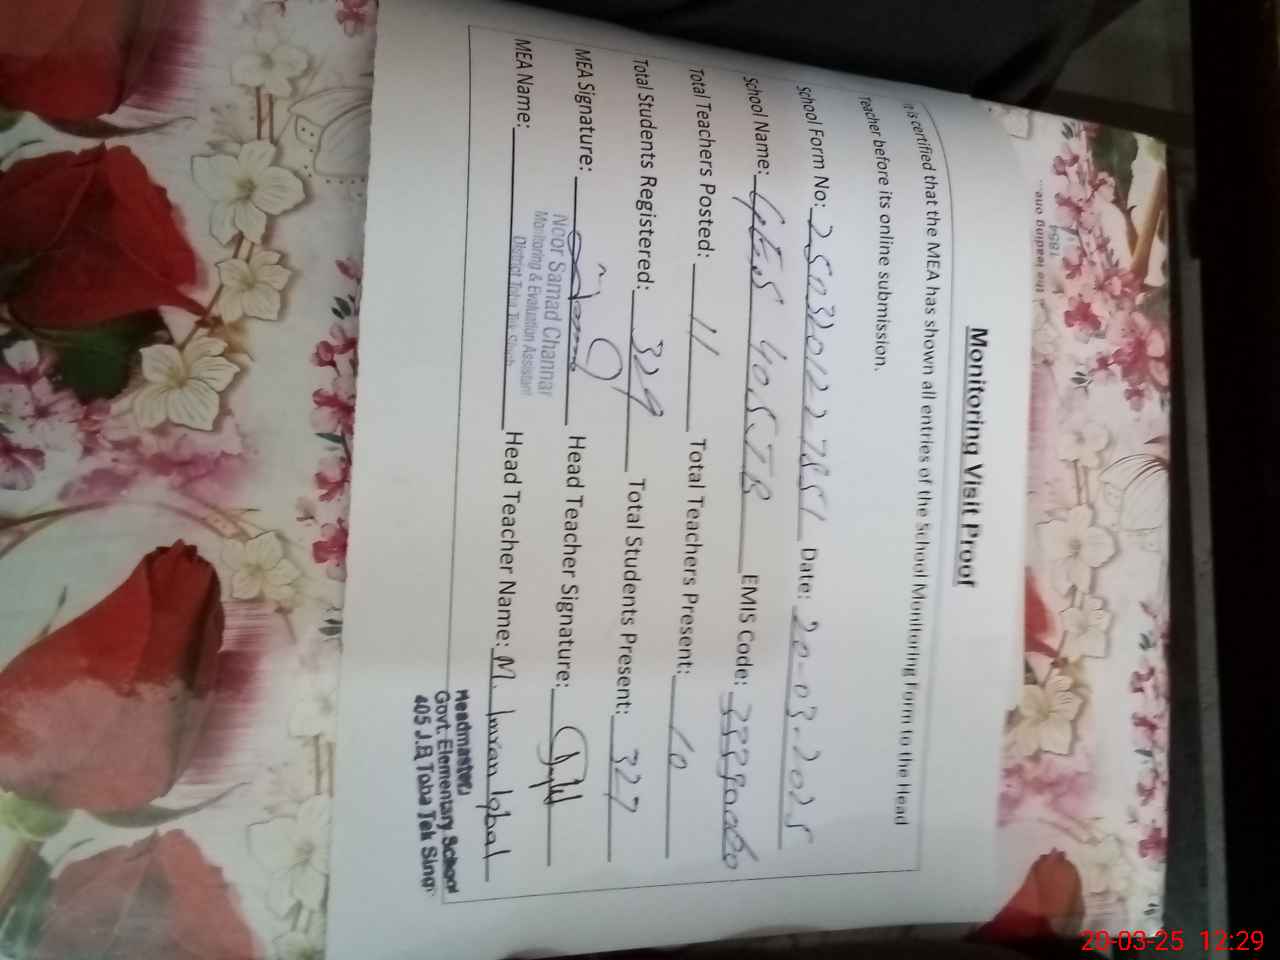 Monitoring Visit Proof
It is certified that the MEA has shown all entries of the School Monitoring Form to the Head
Teacher before its online submission.
School Form No: Date: 20-03-2025
School Name: GES 405JB EMIS Code:
Total Teachers Posted: 11 Total Teachers Present: 10
Total Students Registered: 329 Total Students Present: 327
MEA Signature: Head Teacher Signature:
Noor Samad Channar
Monitoring & Evaluation Assistant
District Toba Tek Singh
MEA Name: Head Teacher Name: M. Imran Iqbal
Headmaster
Govt. Elementary School
405 J.B Toba Tek Sing
1954
the leading one...
20-03-25 12:29